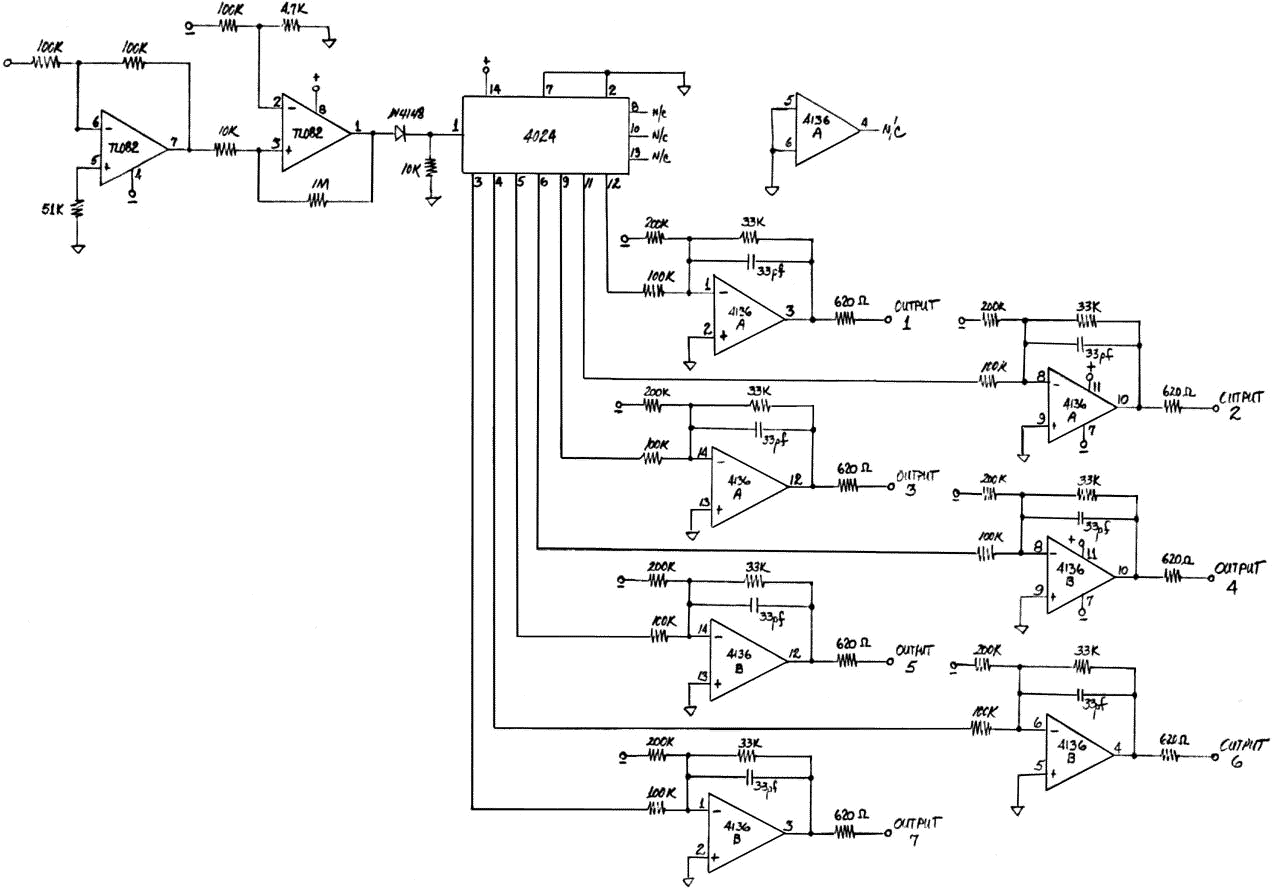 100K
4.7K
100K
100K
+
2
-
8
TL082
3
+
1
6
-
TL082
5
+
7
4
10K
1M
51K
1N4148
10K
+
14
7
2
1
4024
8
N/C
10
N/C
13
N/C
3
4
5
6
9
11
12
5
4136
A
6
4
N/C
200K
33K
33pf
100K
1
-
4136
A
2
+
3
620Ω
OUTPUT
1
200K
33K
33pf
100K
+
11
8
-
4136
A
9
+
7
10
620Ω
OUTPUT
2
200K
33K
33pf
100K
14
-
4136
A
13
+
12
620Ω
OUTPUT
3
200K
33K
33pf
100K
+
11
8
-
4136
B
9
+
7
10
620Ω
OUTPUT
4
200K
33K
33pf
100K
14
-
4136
B
13
+
12
620Ω
OUTPUT
5
200K
33K
33pf
100K
6
-
4136
B
5
+
4
620Ω
OUTPUT
6
200K
33K
33pf
100K
1
-
4136
B
2
+
3
620Ω
OUTPUT
7